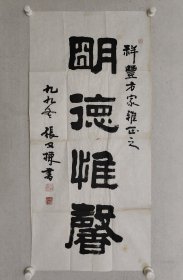 祥豐方家雅正之
明德惟馨
九九冬 張又棟書